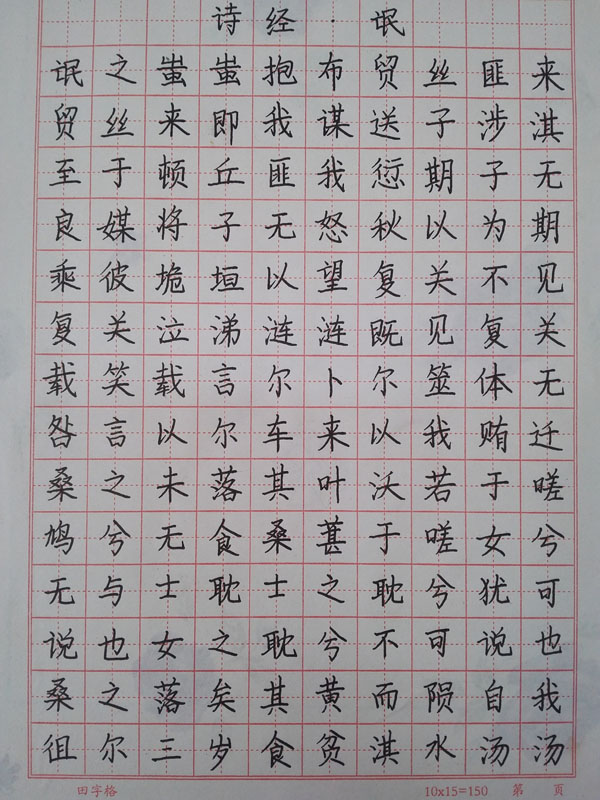 诗经·氓
氓之蚩蚩抱布贸丝匪来
贸丝来即我谋送子涉淇
至于顿丘匪我愆期子无
良媒将子无怒秋以为期
乘彼垝垣以望复关不见
复关泣涕涟涟既见复关
载笑载言尔卜尔筮体无
咎言以尔车来以我贿迁
桑之未落其叶沃若于嗟
鸠兮无食桑葚于嗟女兮
无与士耽士之耽兮犹可
说也女之耽兮不可说也
桑之落矣其黄而陨自我
徂尔三岁食贫淇水汤汤
田字格 10x15=150 第 页